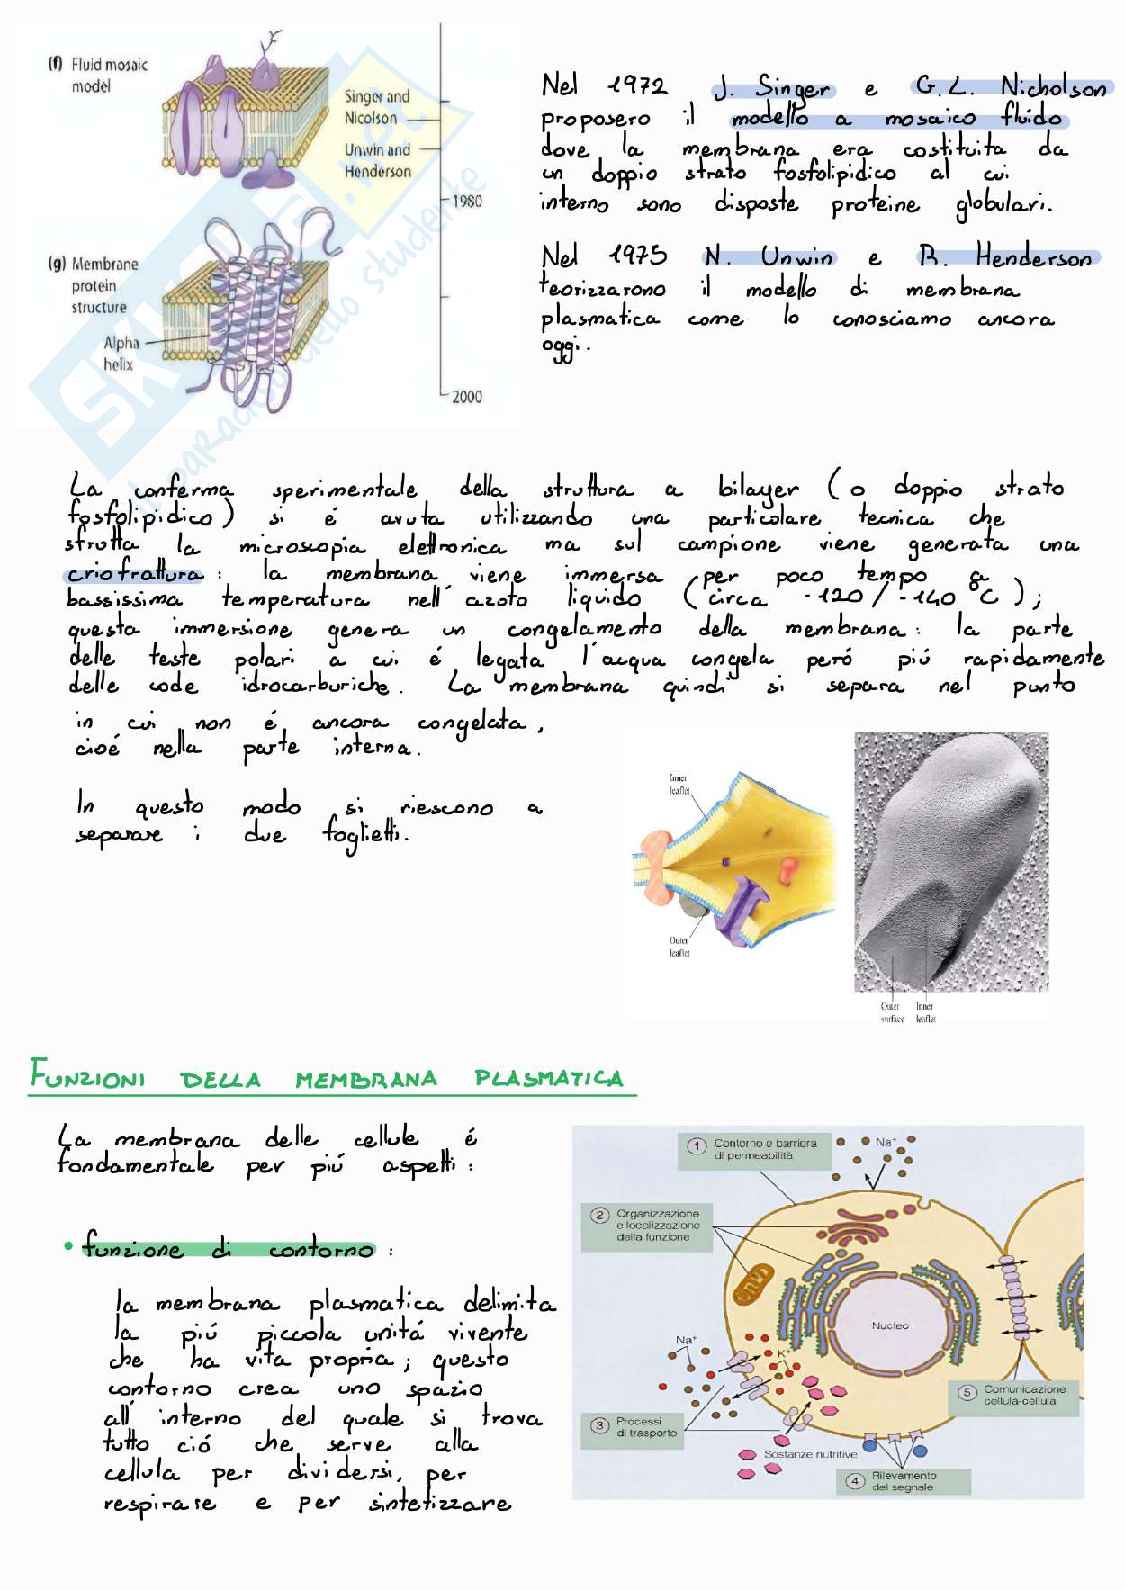 (f) Fluid mosaic
model
Singer and
Nicolson
Unwin and
Henderson
1980
(g) Membrane
protein
structure
Alpha
helix
2000
Nel 1972 J. Singer e G.L. Nicholson
proposero il modello a mosaico fluido
dove la membrana era costituita da
un doppio strato fosfolipidico al cui
interno sono disposte proteine globulari.
Nel 1975 N. Unwin e R. Henderson
teorizzarono il modello di membrana
plasmatica come lo conosciamo ancora
oggi.
La conferma sperimentale della struttura a bilayer (o doppio strato
fosfolipidico) si é avuta utilizzando una particolare tecnica che
sfrutta la microscopia elettronica ma sul campione viene generata una
criofrattura: la membrana viene immersa per poco tempo a
bassissima temperatura nell'azoto liquido (circa -120/-140 °C);
questa immersione genera un congelamento della membrana: la parte
delle teste polari a cui é legata l'acqua congela peró piú rapidamente
delle code idrocarburiche. La membrana quindi si separa nel punto
in cui non é ancora congelata,
cioé nella parte interna.
In questo modo si riescono a
separare i due foglietti.
Inner
leaflet
Outer
leaflet
Outer
surface
Inner
leaflet
FUNZIONI DELLA MEMBRANA PLASMATICA
La membrana delle cellule é
fondamentale per piú aspetti:
• funzione di contorno:
la membrana plasmatica delimita
la piú piccola unitá vivente
che ha vita propria; questo
contorno crea uno spazio
all'interno del quale si trova
tutto ció che serve alla
cellula per dividersi, per
respirare e per sintetizzare
1 Contorno e barriera
di permeabilità
Na+
2 Organizzazione
e localizzazione
della funzione
Nucleo
Na+
K+
3 Processi
di trasporto
Sostanze nutritive
4 Rilevamento
del segnale
5 Comunicazione
cellula-cellula